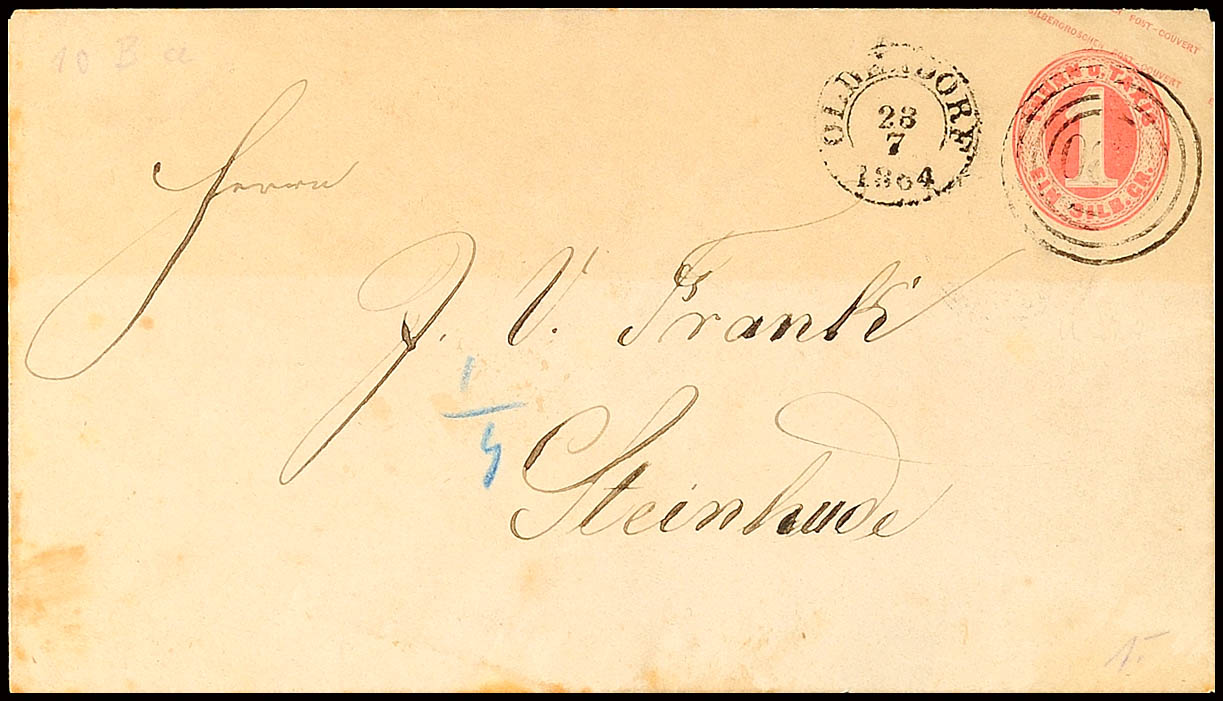 10 B a
POST-COUVERT
SILBERGROSCHEN POST-COUVERT
THURN U. TAXIS
1
EIN SILB. GR.
OLDENDORF
28
7
1864
Herrn
J. V. Frank
1
5
Steinhude
1.-